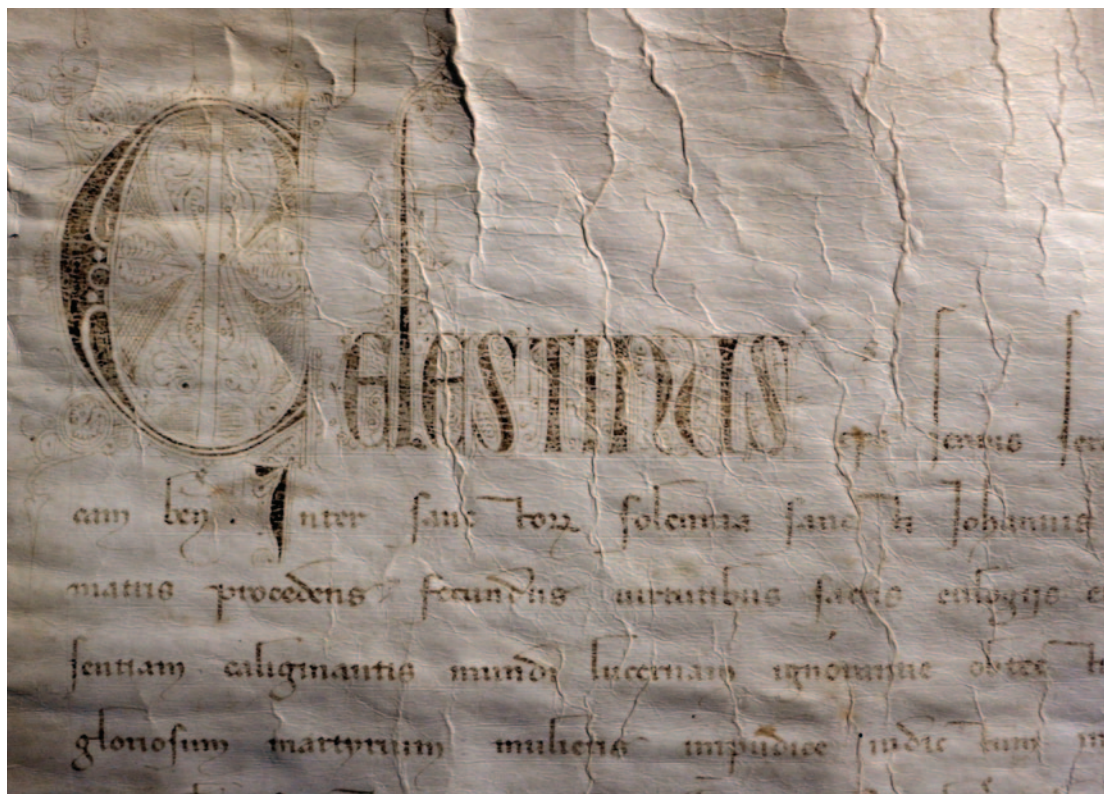 Celestinus eps servus ser
cam ben. Inter sanctorz solemnia sancti Johannis
matris procedens fecundus virtutibus sacris eulogiis e
sentiam caliginantis mundi lucernam ignorantie obtec t
gloriosum martyrium mulieris impudice indictum m